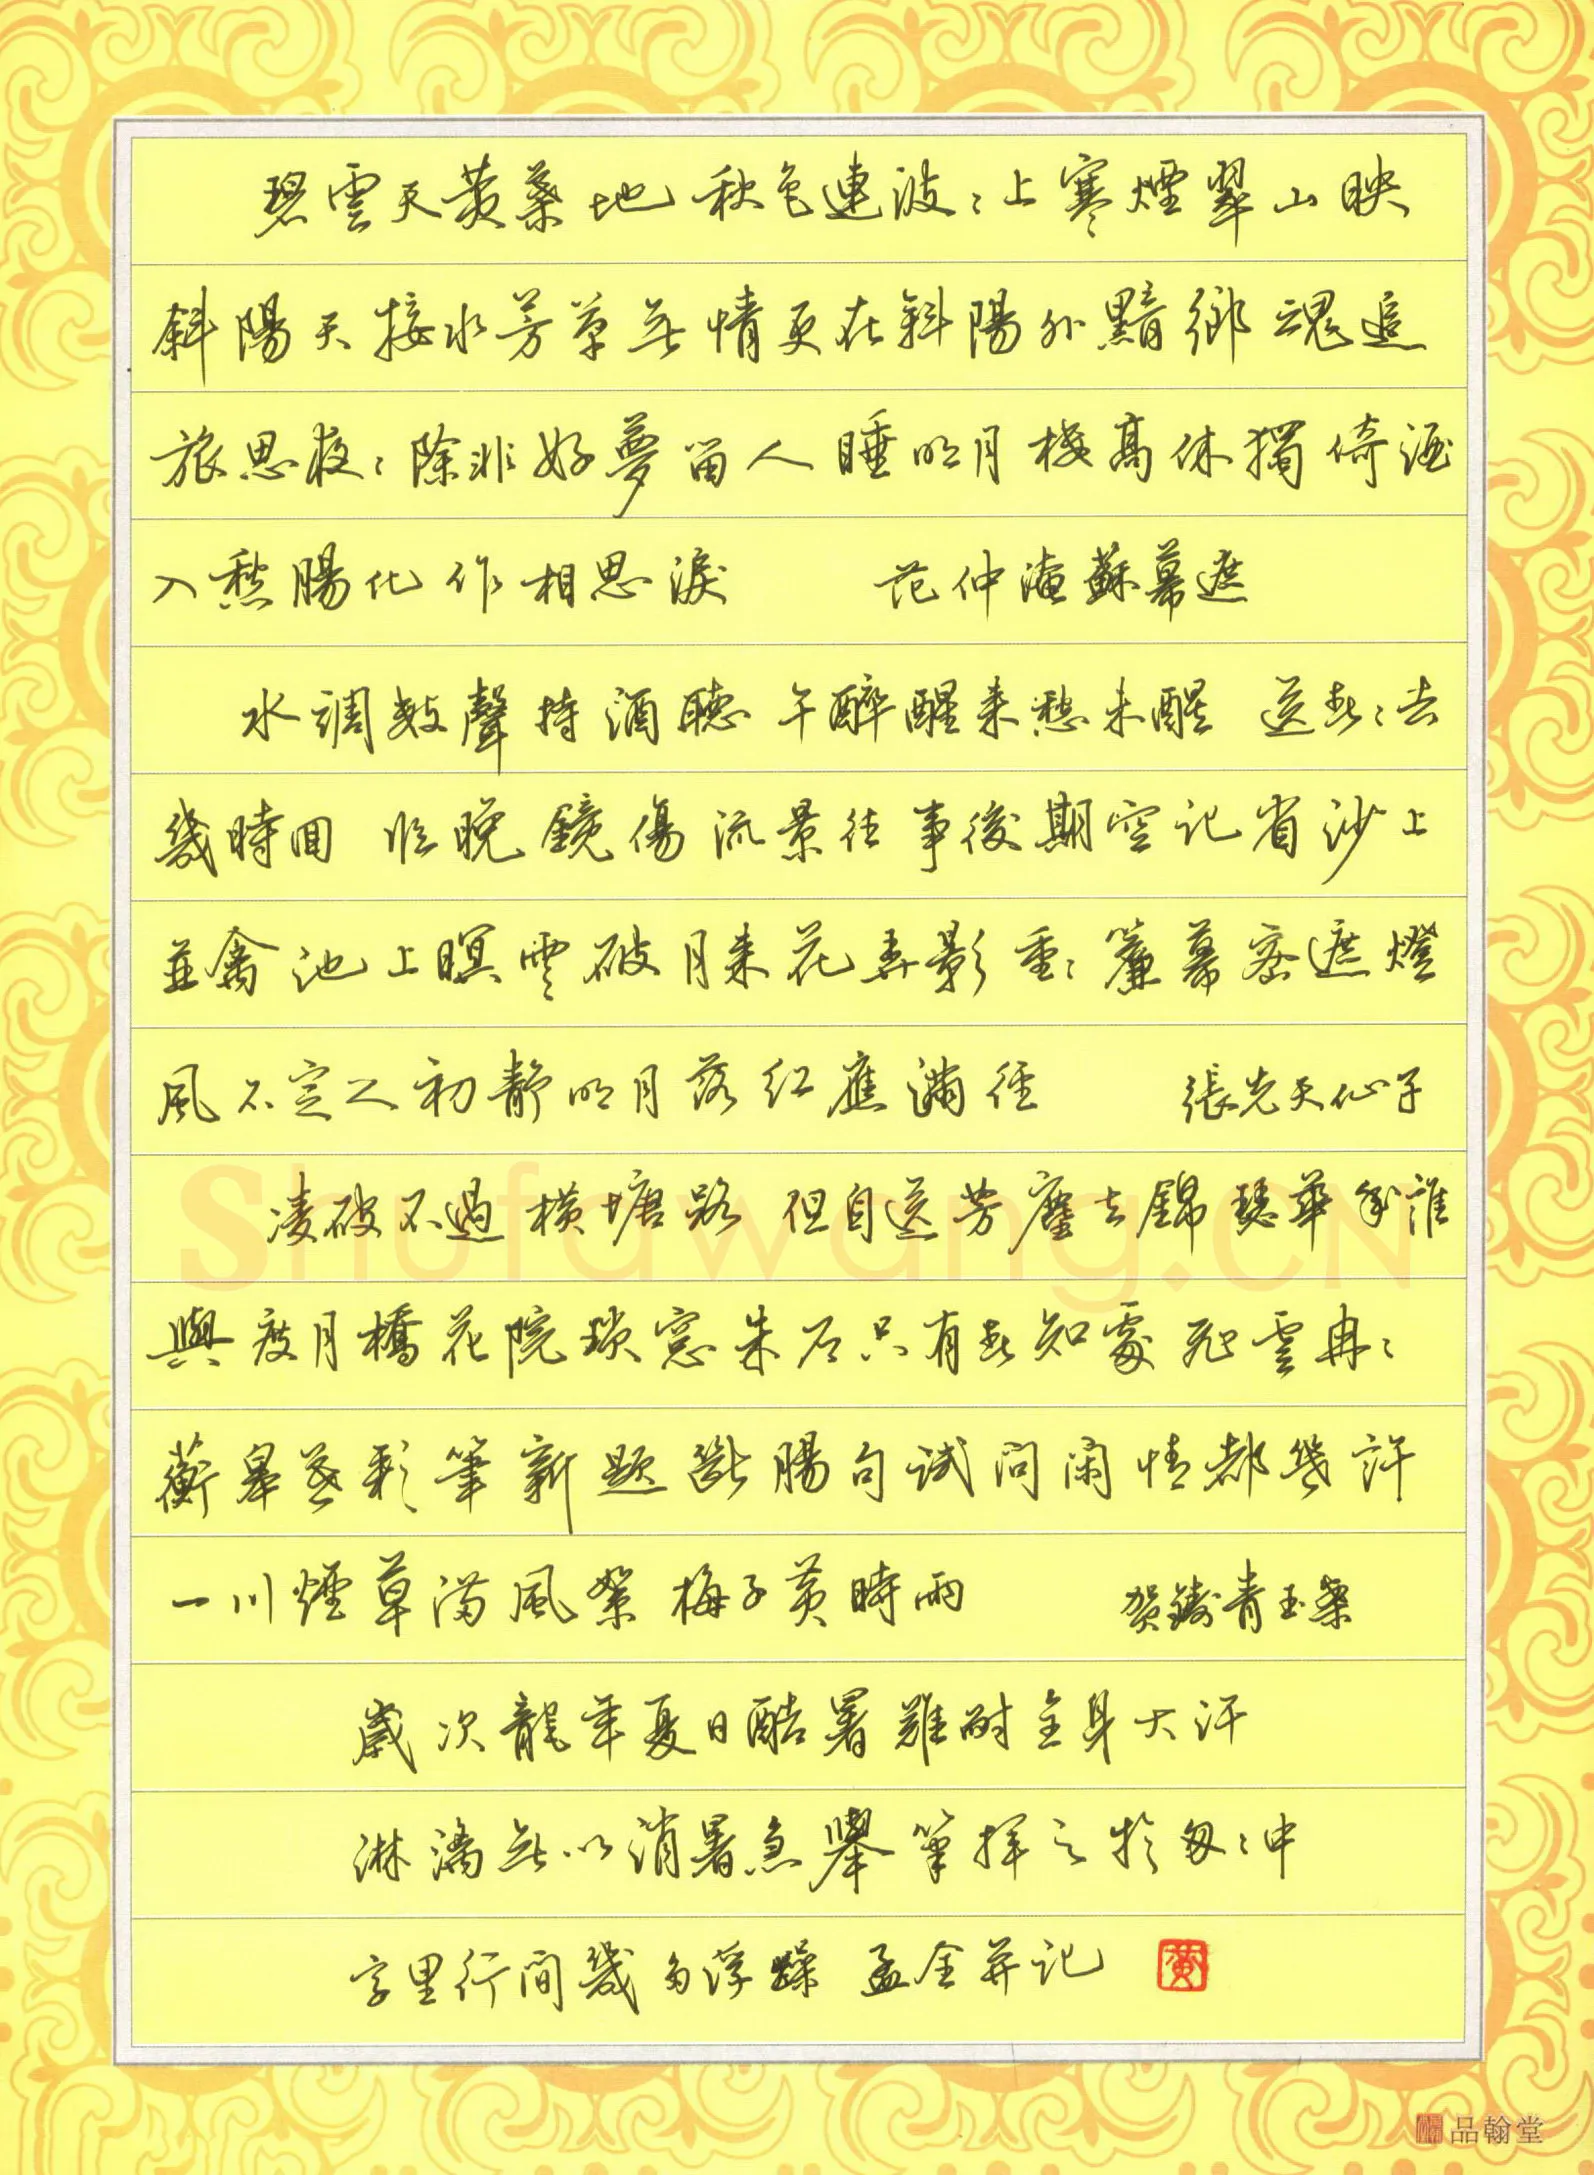 碧雲天黄葉地秋色連波〻上寒煙翠山映
斜陽天接水芳草無情更在斜陽外黯鄉魂追
旅思夜〻除非好夢留人睡明月樓高休獨倚酒
入愁腸化作相思淚 范仲淹蘇幕遮
水調數聲持酒聽午醉醒来愁未醒 送春〻去
幾時回 臨晚鏡傷流景往事後期空記省沙上
並禽池上暝雲破月来花弄影重〻簾幕密遮燈
風不定人初静明月落红應滿徑 張先天仙子
凌破不過横塘路 但目送芳塵去錦瑟華年誰
與度月橋花院瑣窗朱户只有春知處飛雲冉〻
蘅皋暮彩筆新題斷腸句试问闲情都幾許
一川煙草满風絮梅子黄時雨 贺鑄青玉案
歲次龍年夏日酷暑難耐全身大汗
淋漓無以消暑急舉筆揮之於匆〻中
字里行間幾多浮躁 孟全并记
黄
品翰堂
Shufawang.CN